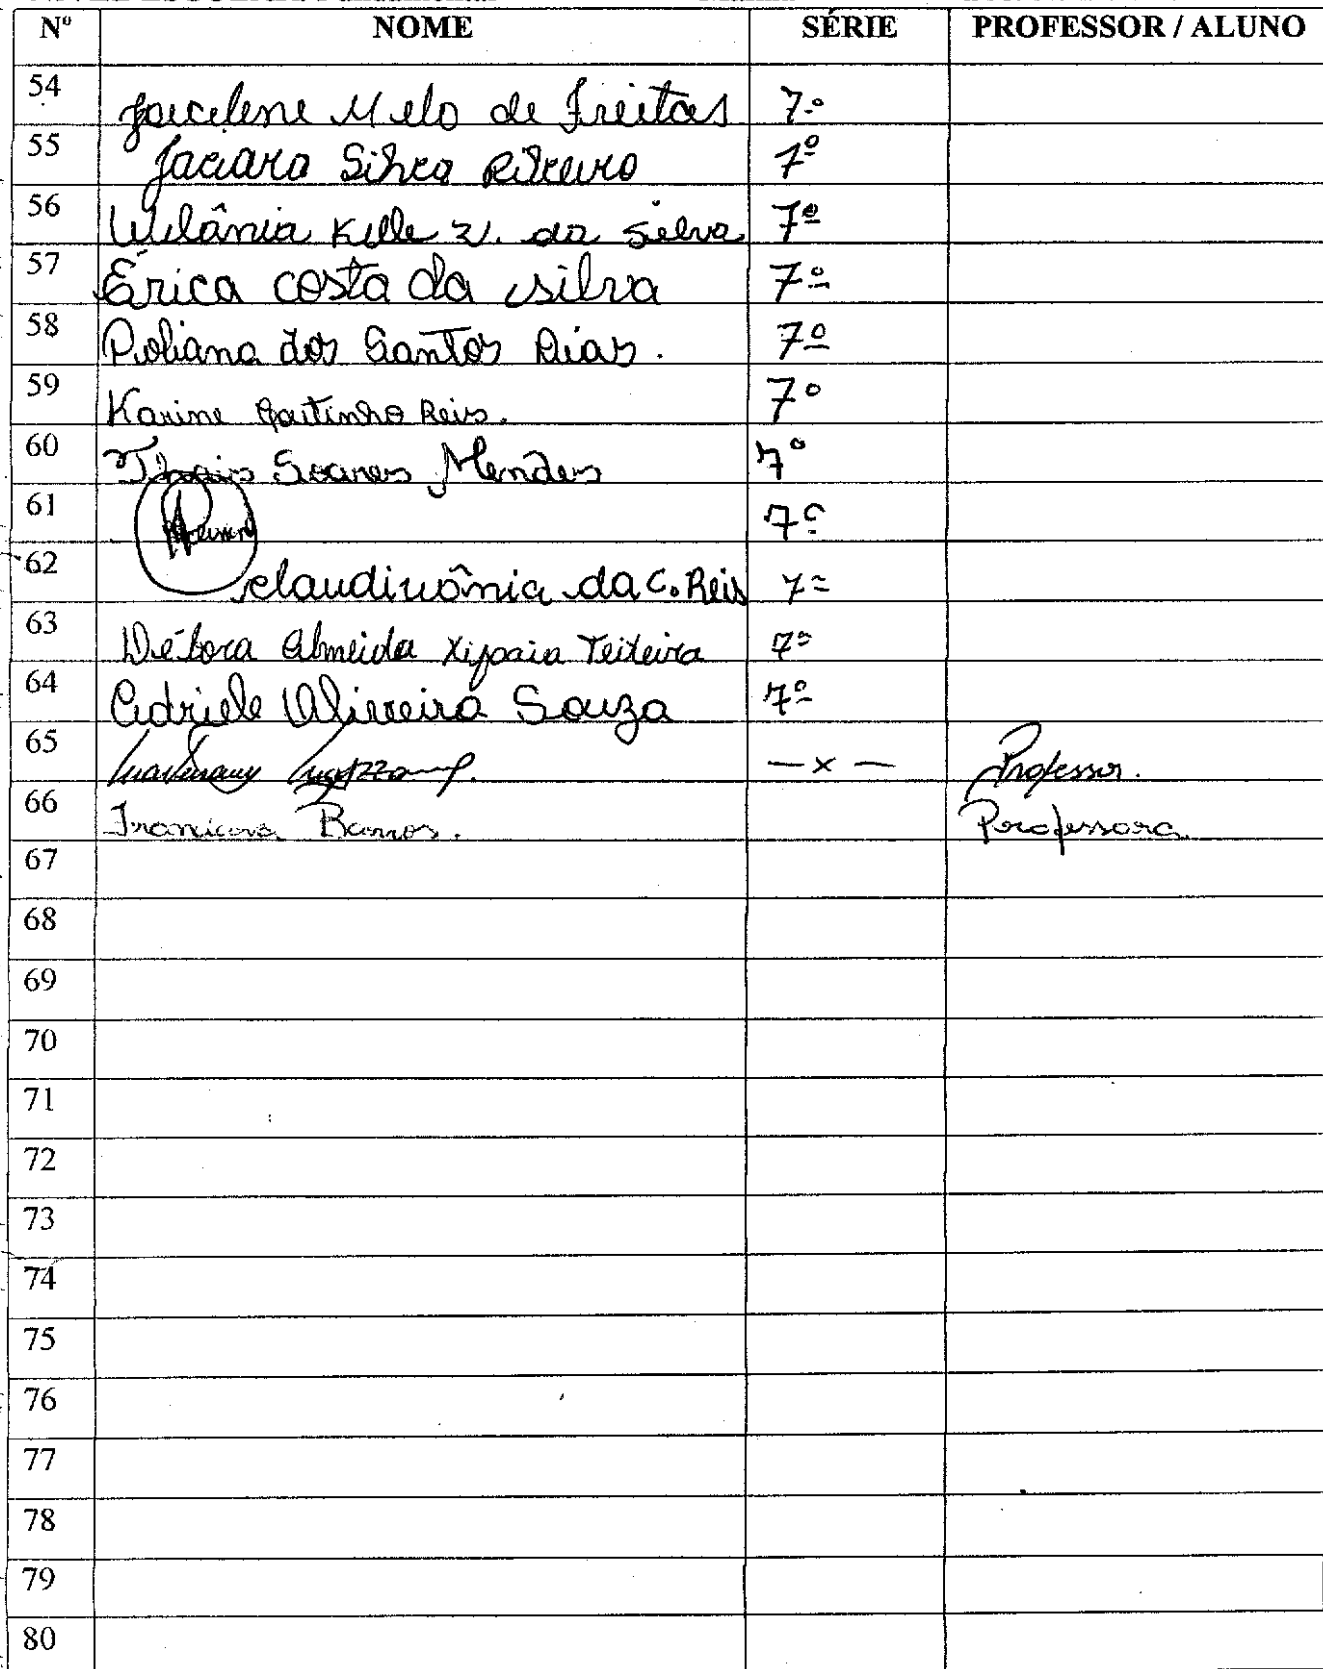 Nº NOME SÉRIE PROFESSOR / ALUNO
54 Jacilene Melo de Freitas 7º
55 Jaciara Silva Ribeiro 7º
56 Kelle da Silva 7º
57 Érica costa da silva 7º
58 Poliana dos Santos Dias. 7º
59 Karine Reis. 7º
60 Thais Soares Mendes 7º
61 7º
62 da C. Reis 7º
63 Débora Almeida Xipaia Teixeira 7º
64 Adriele Oliveira Souza 7º
65 — x — Professor.
66 Barros. Professora
67
68
69
70
71
72
73
74
75
76
77
78
79
80